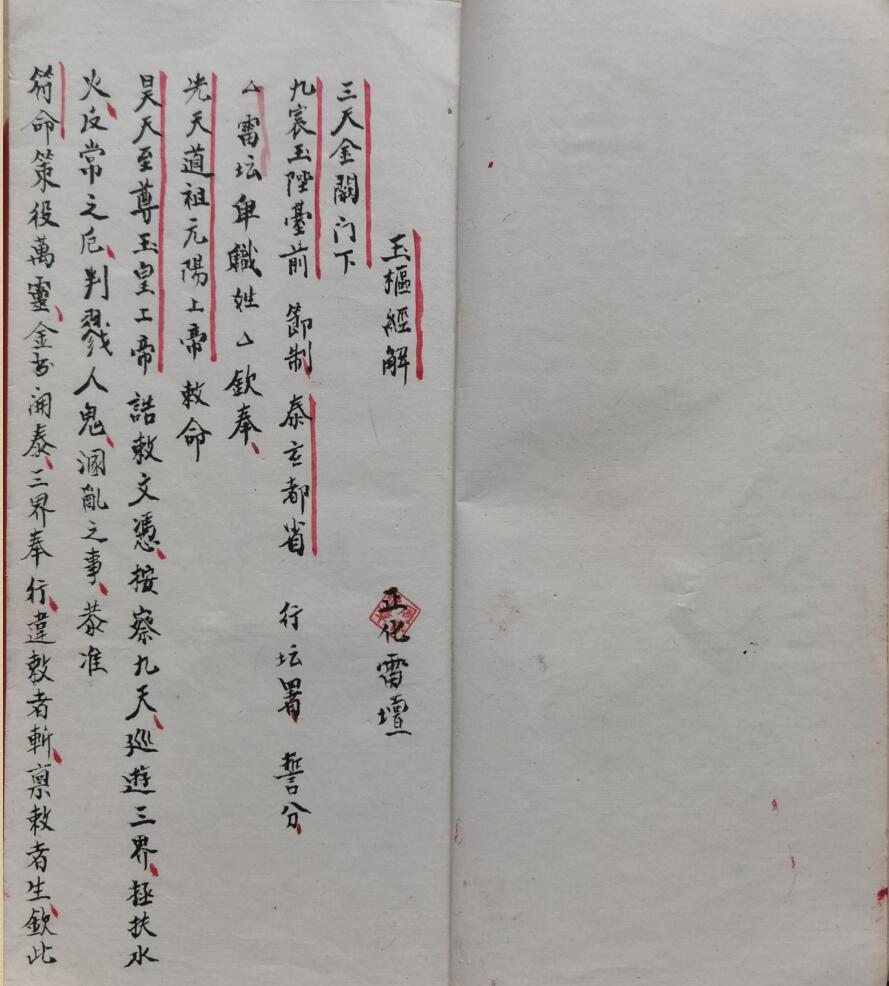 玉樞經解 正化雷壇
三天金闕门下
九宸玉陛臺前 御制 泰玄都省 行坛署 誓分
厶雷坛卑職姓厶欽奉
先天道祖元陽上帝敕命
昊天至尊玉皇上帝誥敕文憑按察九天巡遊三界拯扶水
火反常之厄判戮人鬼溷亂之事恭准
符命策役萬靈金书開泰三界奉行違敕者斬禀敕者生欽此